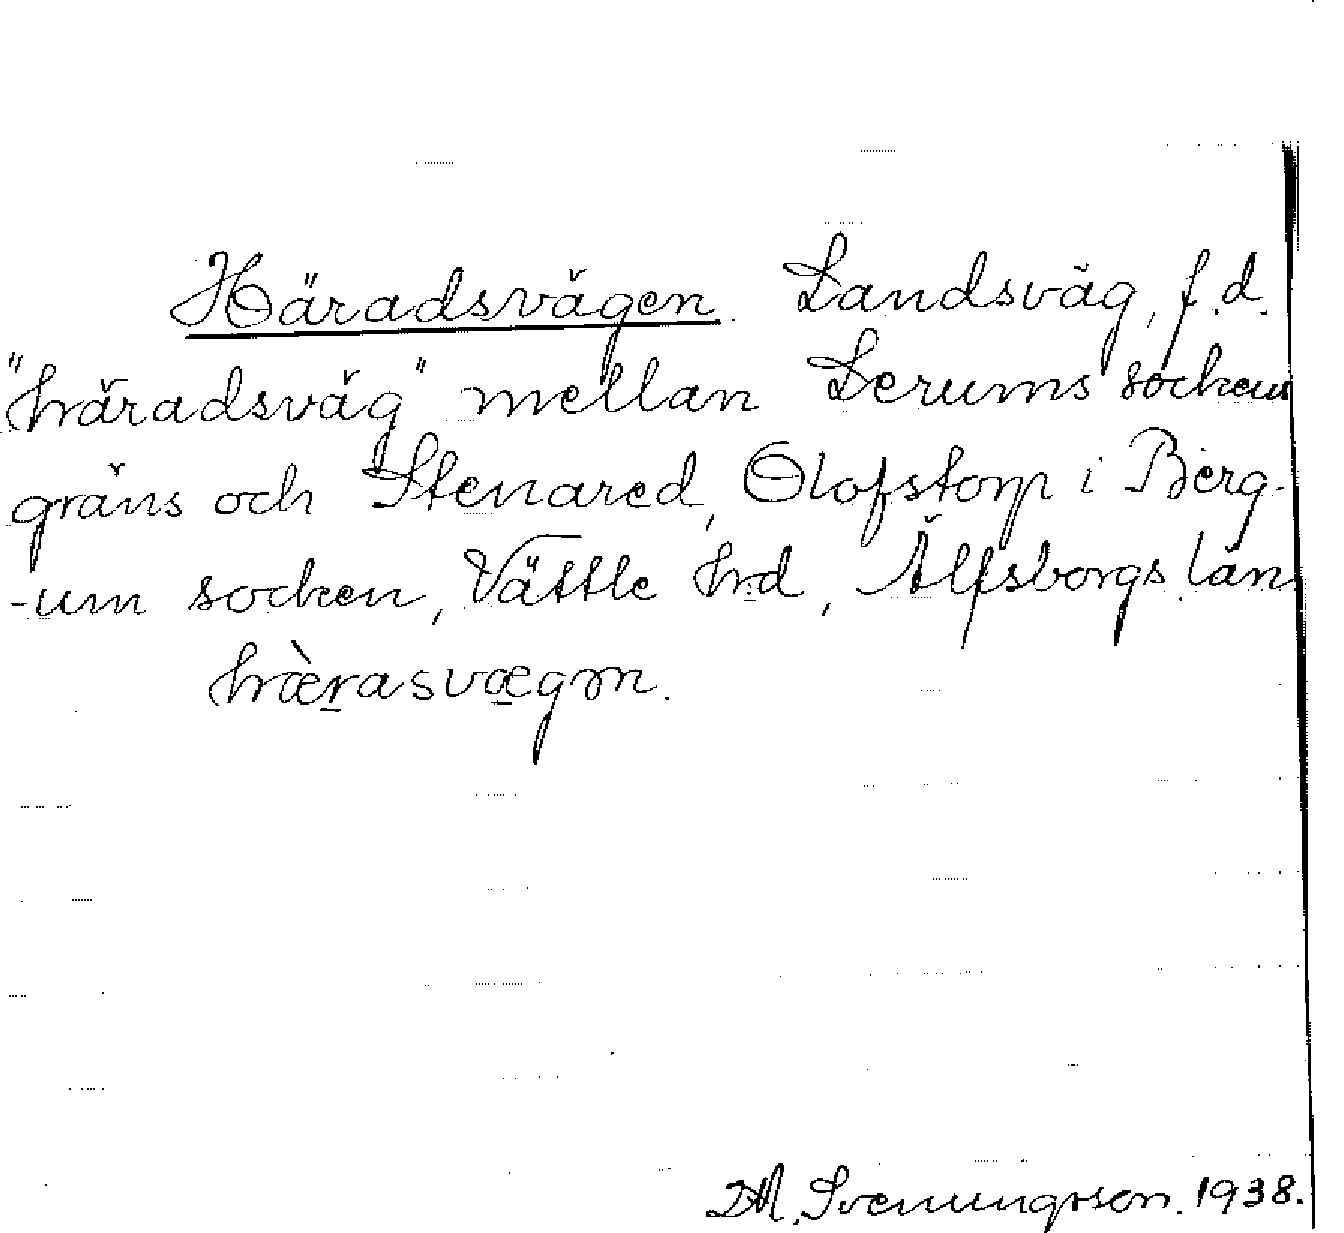 Häradsvägen. Landsväg, f.d.
"häradsväg" mellan Lerums socken
gräns och Stenared, Olofstorp i Berg-
-um socken, Vättle hrd, Älfsborgs län
hæ̀rasvægən.
D.M. Svenungsson. 1938.